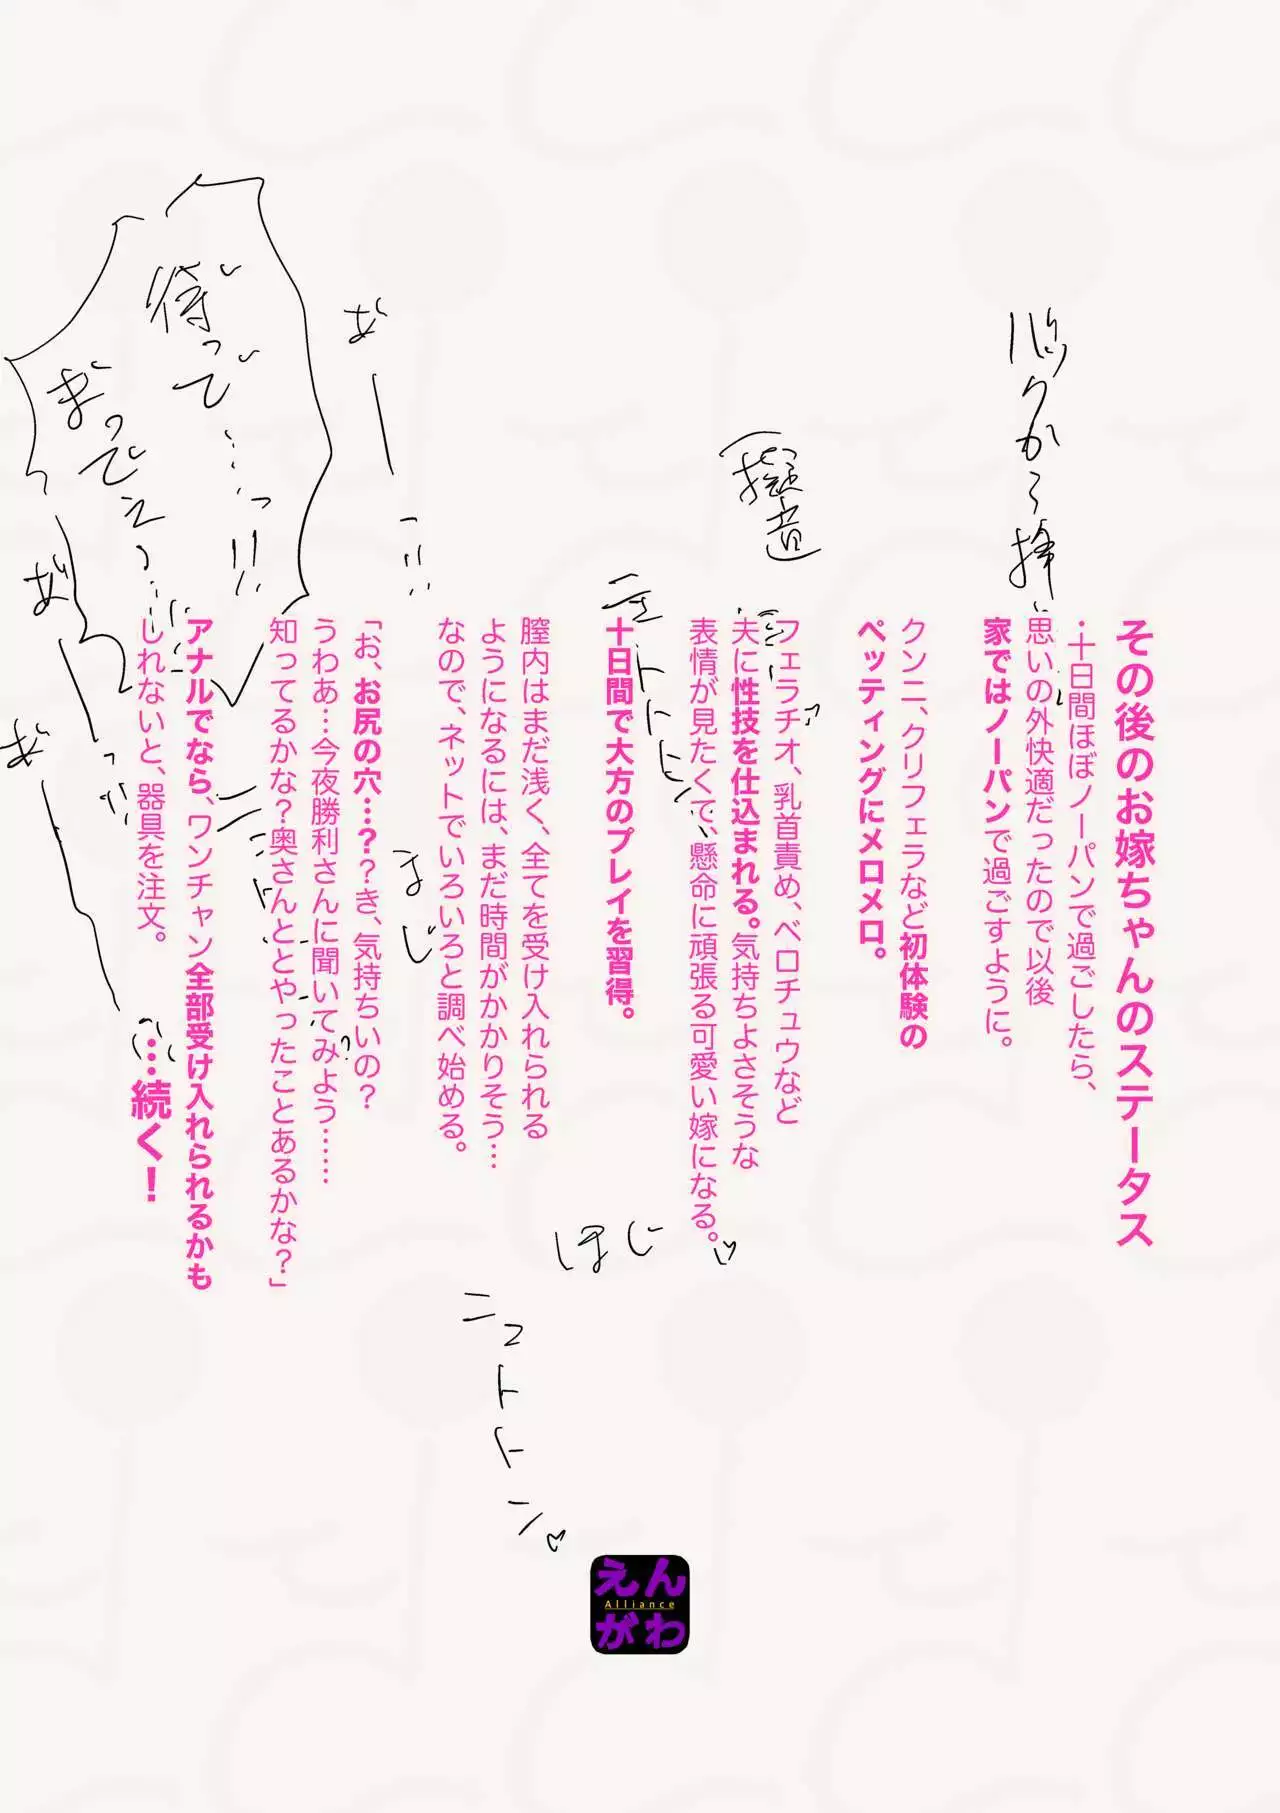 その後のお嫁ちゃんのステータス
・十日間ほぼノーパンで過ごしたら、
思いの外快適だったので以後
家ではノーパンで過ごすように。
クンニ、クリフェラなど初体験の
ペッティングにメロメロ。
フェラチオ、乳首責め、ベロチュウなど
夫に性技を仕込まれる。気持ちよさそうな
表情が見たくて、懸命に頑張る可愛い嫁になる。
十日間で大方のプレイを習得。
膣内はまだ浅く、全てを受け入れられる
ようになるには、まだ時間がかかりそう…
なので、ネットでいろいろと調べ始める。
「お、お尻の穴…？？き、気持ちいいの？
うわあ…今夜勝利さんに聞いてみよう……
知ってるかな？奥さんととやったことあるかな？」
アナルでなら、ワンチャン全部受け入れられるかも
しれないと、器具を注文。
…続く！
擬音
ほじ
ニュトトン♡
待っで…っ!!
あ゛ーっ!!
えんがわ
Alliance